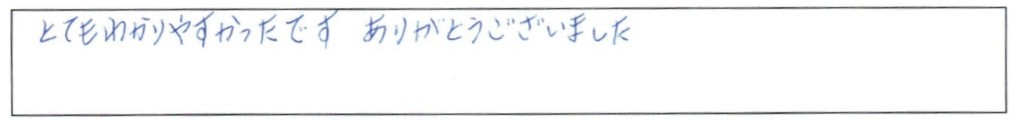 とてもわかりやすかったです ありがとうございました